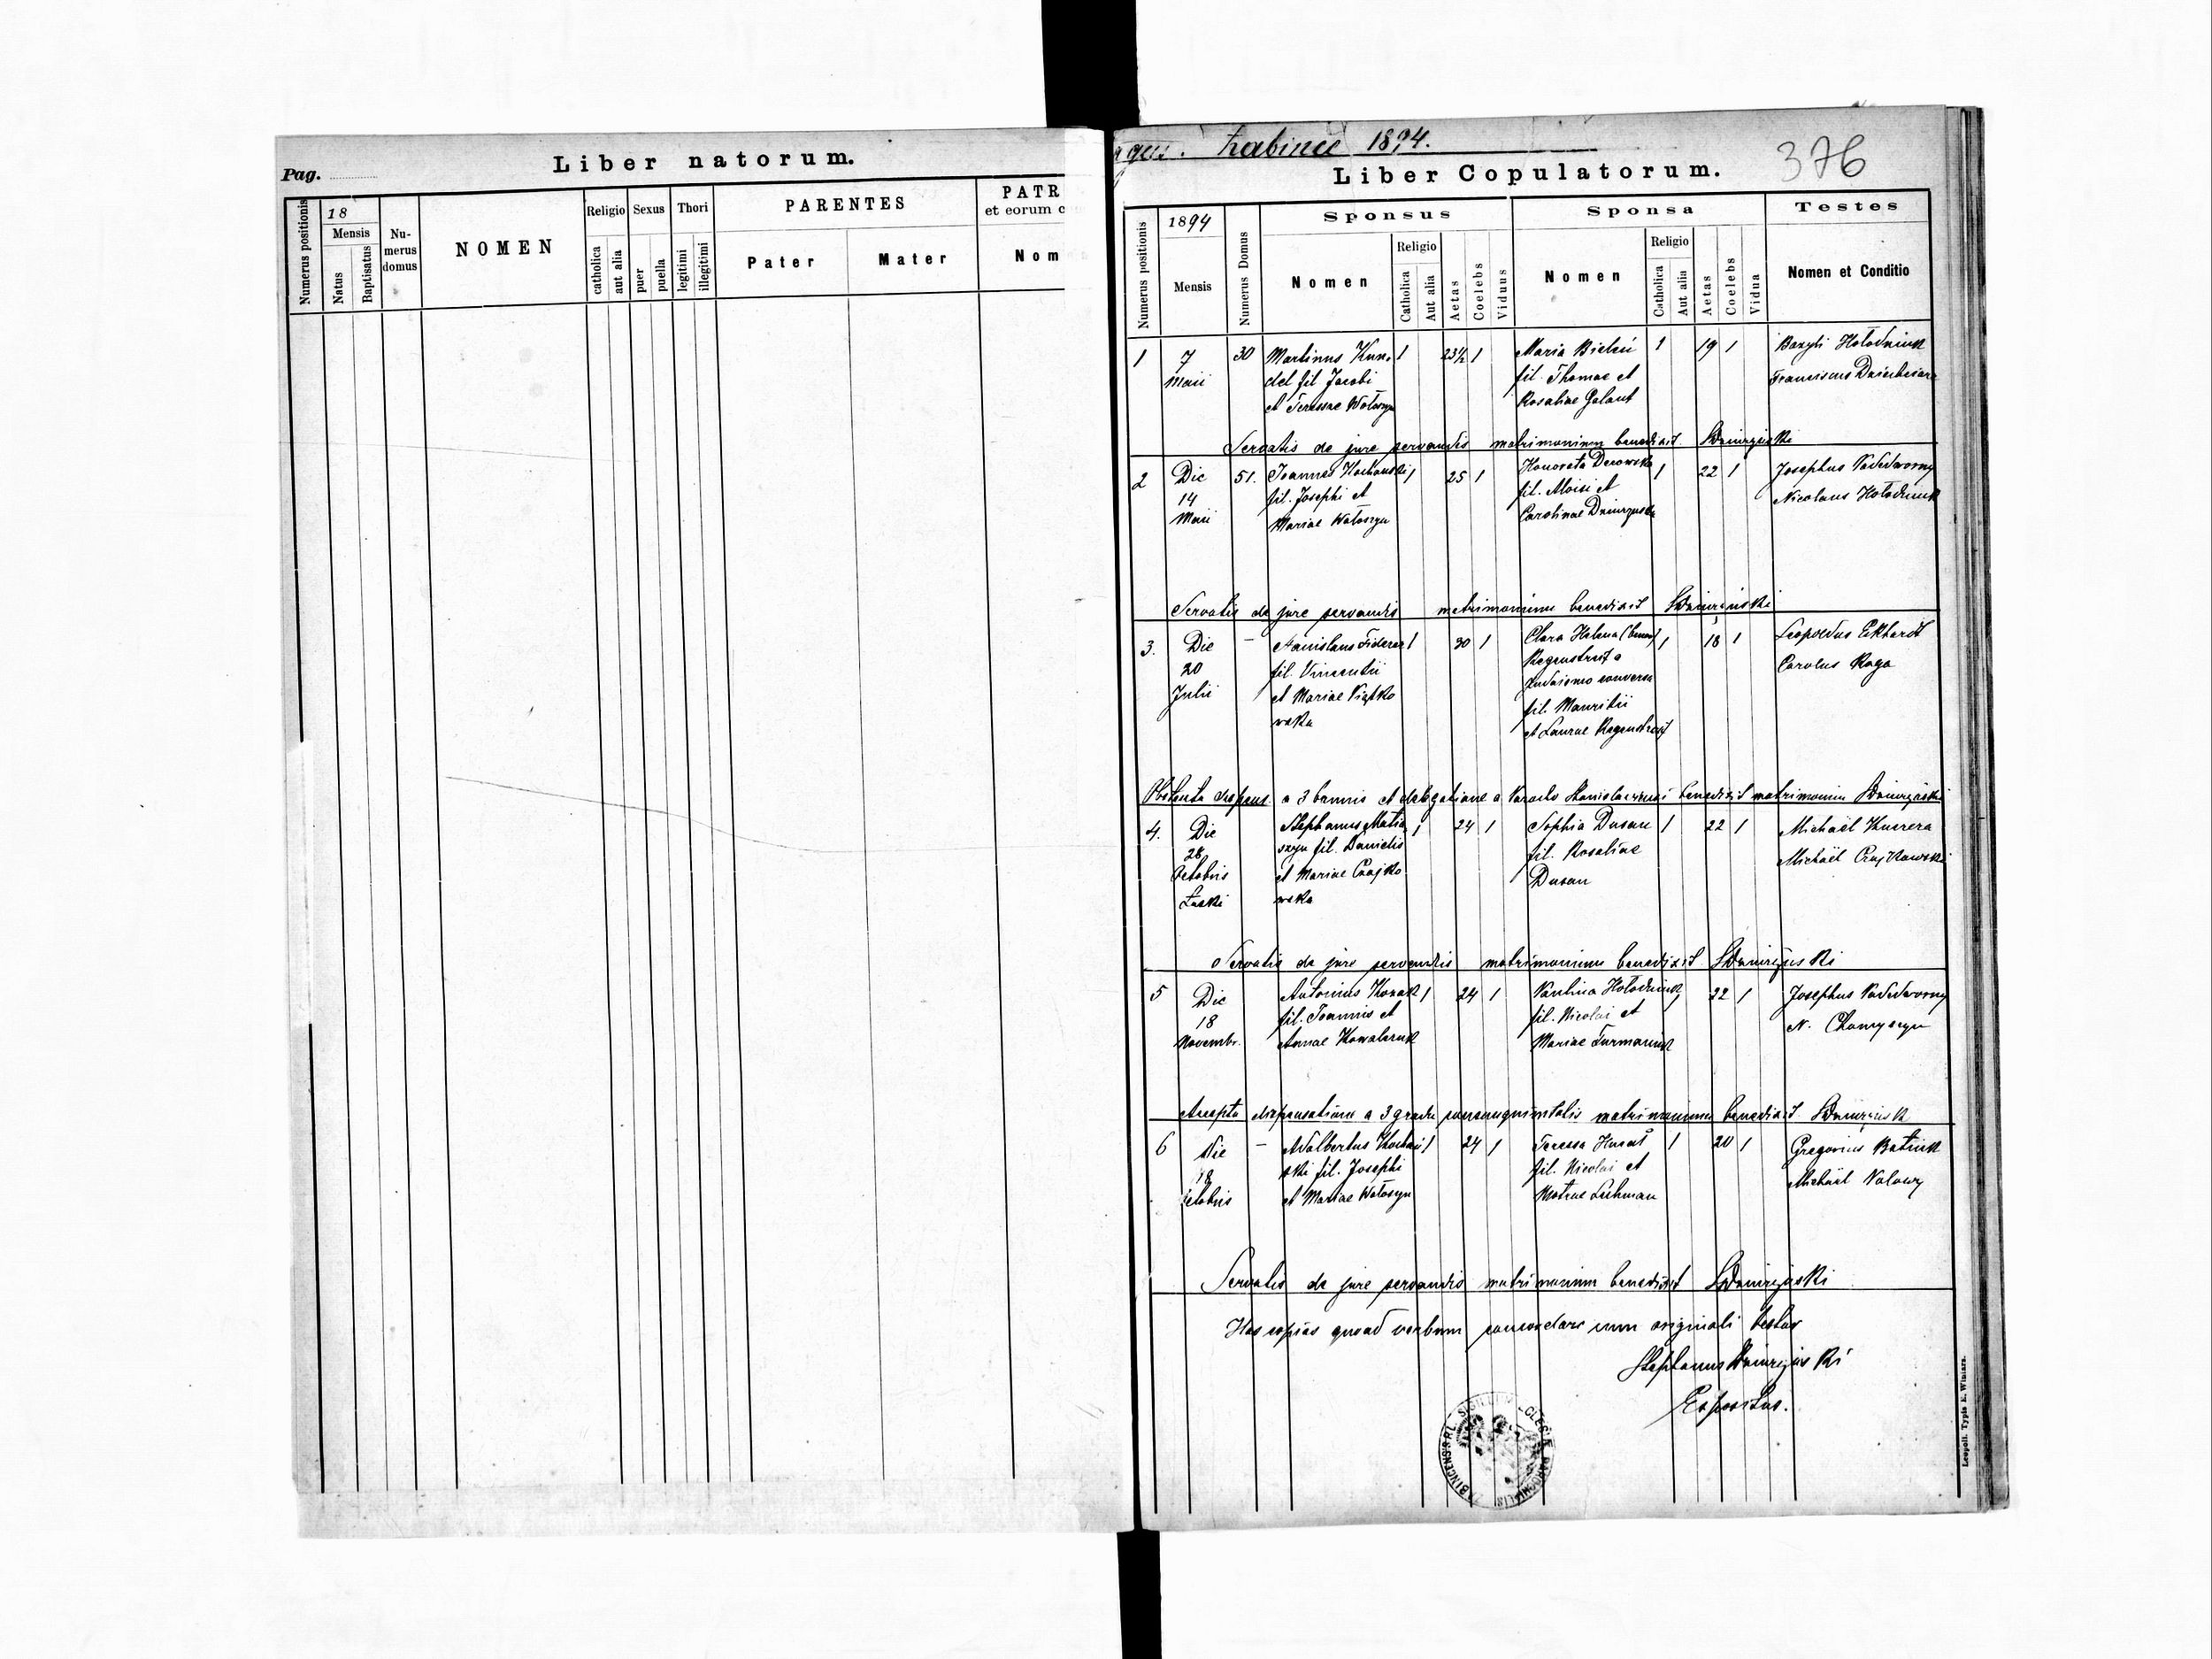 Pag.
Liber natorum.
Numerus positionis
18
Mensis
Natus
Baptisatus
Nu-
merus
domus
NOMEN
Religio
catholica
aut alia
Sexus
puer
puella
Thori
legitimi
illegitimi
PARENTES
Pater
Mater
PATR
et eorum c
Nom
Żabince 1894.
376
Liber Copulatorum.
Numerus positionis
1894
Mensis
Numerus Domus
Sponsus
Nomen
Religio
Catholica
Aut alia
Aetas
Coelebs
Viduus
Sponsa
Nomen
Religio
Catholica
Aut alia
Aetas
Coelebs
Vidua
Testes
Nomen et Conditio
1
7
Maii
30
Martinus Kun-
del fil Jacobi
et Teressae Wołoszyn
1
23½
1
Maria
fil. Thomae et
Rosaliae Galant
1
19
1
Bazyli Hołodniuk
Franciscus
Servatis de jure servandis matrimonium benedixit SDmirzyński
2
Die
14
Maii
51.
Joannes Kochański
fil. Josephi et
Mariae Wołoszyn
1
25
1
Honorata Derowska
fil. Moisi et
Carolinae
1
22
1
Josephus Podedworny
Nicolaus Hołodniuk
Servatis de jure servandis matrimonium benedixit SDmirzyński
3.
Die
20
Julii
–
Stanislaus Fiderer
fil. Vincentii
et Mariae Piątko
wska
1
30
1
Clara Helena
Regenstreif a
Judaismo conversa
fil. Mauritii
et Laurae Regenstreif
1
18
1
Leopoldus Ekhardt
Carolus Raga
Obtenta dispens. a 3 bannis et delegatione a Parocho benedixit matrimonium Dmirzyński
4.
Die
28
Octobris
Łuski
Stephanus Matia
szyn fil. Danielis
et Mariae Czajko
wska
1
24
1
Sophia Dusan
fil. Rosaliae
Dusan
1
22
1
Michaël Kucrera
Michaël Czajkowski
Servatis de jure servandis matrimonium benedixit SDmirzyński
5
Die
18
Novembr.
Antonius Kozak
fil. Joannis et
Annae Kowalczuk
1
24
1
Paulina Hołodniuk
fil. Nicolai et
Mariae Furmaniuk
1
22
1
Josephus Podedworny
N. Chomyszyn
Accepta dispensatione a 3 gradu consanguinitatis matrimonium benedixit SDmirzyński
6
Die
18
Octobris
–
Adalbertus Kochań
ski fil. Josephi
et Mariae Wołoszyn
1
24
1
Teressa Hunał
fil. Nicolai et
Lehman
1
20
1
Gregorius Batiuk
Michaël
Servatis de jure servandis matrimonium benedixit SDmirzyński
Has copias quoad verbum concordare cum originali testor
Stephanus Dmirzyński
Expositus.
Leopoli. Typis E. Winiarz.